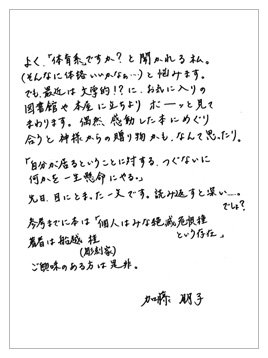 よく、「体育系ですか？と聞かれる私。
（そんなに体格いいかなぁ…）と悩みます。
でも、最近は文学的！？に、お気に入りの
図書館や本屋に立ちより ボーッと見て
まわります。偶然、感動した本にめぐり
合うと神様からの贈り物かも、なんて思ったり。
「自分が居るということに対する、つぐないに
何かを一生懸命にやる。」
先日、目にとまった一文です。読み返すと深い…。
でしょ？
参考までに本は「個人はみな絶滅危惧種
という存在」
著者は舩越 桂
（彫刻家）
ご興味のある方は是非。
加藤 朋子